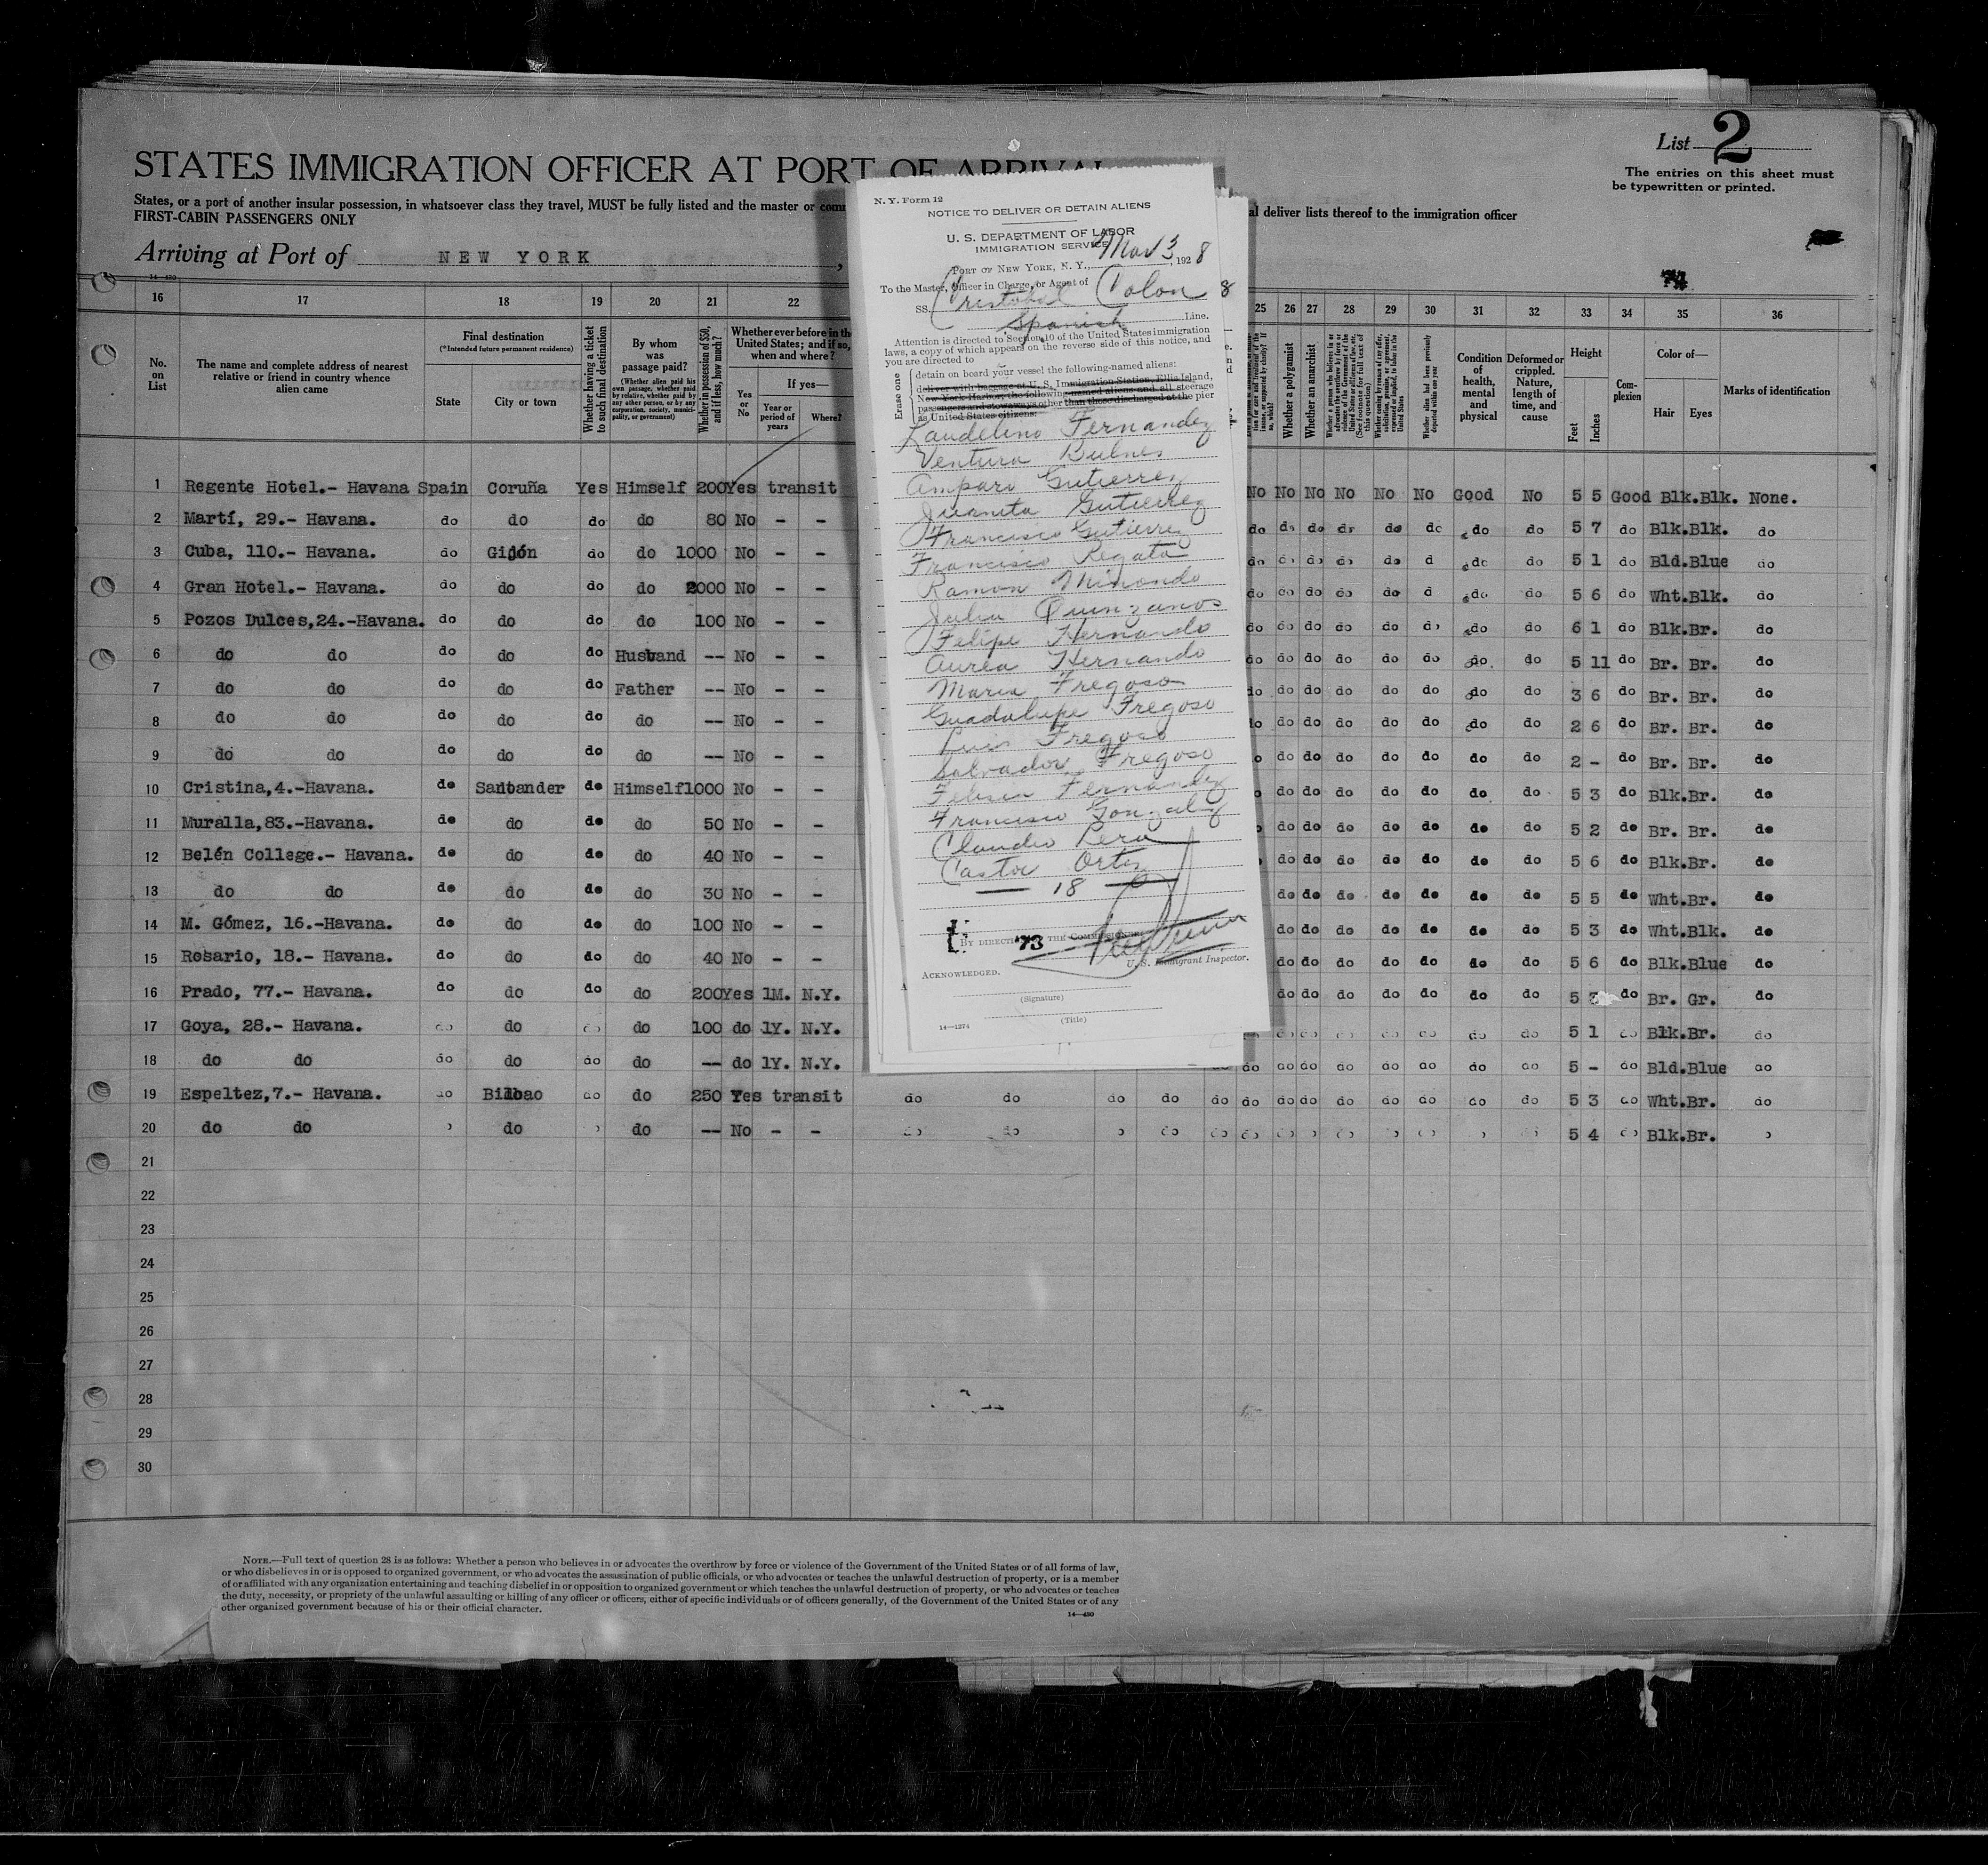 List 2
The entries on this sheet must
be typewritten or printed.
STATES IMMIGRATION OFFICER AT PORT OF ARRIVAL
States, or a port of another insular possession, in whatsoever class they travel, MUST be fully listed and the master or com
al deliver lists thereof to the immigration officer
FIRST-CABIN PASSENGERS ONLY
Arriving at Port of NEW YORK ,
14-430
16 17 18 19 20 21 22 25 26 27 28 29 30 31 32 33 34 35 36
No. on List
The name and complete address of nearest relative or friend in country whence alien came
Final destination
(*Intended future permanent residence)
State City or town
Whether having a ticket to such final destination
By whom was passage paid?
(Whether alien paid his own passage, whether paid by relative, whether paid by any other person, or by any corporation, society, municipality, or government)
Whether in possession of $50, and if less, how much?
Whether ever before in the United States; and if so, when and where?
Yes or No
If yes—
Year or period of years
Where?
Whether a polygamist
Whether an anarchist
Condition of health, mental and physical
Deformed or crippled. Nature, length of time, and cause
Height
Feet Inches
Complexion
Color of—
Hair Eyes
Marks of identification
1 Regente Hotel.- Havana Spain Coruña Yes Himself 200 Yes transit No No No No No No Good No 5 5 Good Blk. Blk. None.
2 Martí, 29.- Havana. do do do do 80 No - - do do do do do do do do 5 7 do Blk. Blk. do
3 Cuba, 110.- Havana. do Gijón do do 1000 No - - do do do do do d do do 5 1 do Bld. Blue do
4 Gran Hotel.- Havana. do do do do 2000 No - - do do do do do d do do 5 6 do Wht. Blk. do
5 Pozos Dulces,24.-Havana. do do do do 100 No - - do do do do do do do do 6 1 do Blk. Br. do
6 do do do do do Husband -- No - - do do do do do do do do 5 11 do Br. Br. do
7 do do do do do Father -- No - - do do do do do do do do 3 6 do Br. Br. do
8 do do do do do do -- No - - do do do do do do do do 2 6 do Br. Br. do
9 do do do do do do -- No - - do do do do do do do do 2 - do Br. Br. do
10 Cristina,4.-Havana. do Santander do Himself 1000 No - - do do do do do do do do 5 3 do Blk. Br. do
11 Muralla,83.-Havana. do do do do 50 No - - do do do do do do do 5 2 do Br. Br. do
12 Belén College.- Havana. do do do do 40 No - - do do do do do do do 5 6 do Blk. Br. do
13 do do do do do do 30 No - - do do do do do do do 5 5 do Wht. Br. do
14 M. Gómez, 16.-Havana. do do do do 100 No - - do do do do do do do 5 3 do Wht. Blk. do
15 Rosario, 18.- Havana. do do do do 40 No - - do do do do do do do 5 6 do Blk. Blue do
16 Prado, 77.- Havana. do do do do 200 Yes 1M. N.Y. do do do do do do do 5 do Br. Gr. do
17 Goya, 28.- Havana. do do do do 100 do 1Y. N.Y. do do do do do do do 5 1 do Blk. Br. do
18 do do do do do do -- do 1Y. N.Y. do do do do do do do do 5 - do Bld. Blue do
19 Espeltez,7.- Havana. do Bilbao do do 250 Yes transit do do do do do do do do do do do do do 5 3 do Wht. Br. do
20 do do do do -- No - - 5 4 Blk. Br.
21
22
23
24
25
26
27
28
29
30
N. Y. Form 12
NOTICE TO DELIVER OR DETAIN ALIENS
U. S. DEPARTMENT OF LABOR
IMMIGRATION SERVICE
PORT OF NEW YORK, N. Y., Mar 3, 1928
To the Master, Officer in Charge, or Agent of
SS. Cristobal Colon
Spanish Line.
Attention is directed to Section 10 of the United States immigration
laws, a copy of which appears on the reverse side of this notice, and
you are directed to
Erase one
detain on board your vessel the following-named aliens:
deliver with baggage at U. S. Immigration Station, Ellis Island,
New York Harbor, the following-named aliens and all steerage
passengers and stowaways other than those discharged at the pier
as United States citizens:
Laudelino Fernandez
Ventura Bulnes
Amparo Gutierrez
Juanita Gutierrez
Francisco Gutierrez
Francisco Regato
Ramon Minondo
Julia Quinzanos
Felipe Hernando
Aurea Hernando
Maria Fregoso
Guadalupe Fregoso
Luis Fregoso
Salvador Fregoso
Felisa Fernandez
Francisco Gonzalez
Claudio Pera
Castor Ortiz
— 18 —
BY DIRECTION OF THE COMMISSIONER
73
U. S. Immigrant Inspector.
ACKNOWLEDGED.
(Signature)
(Title)
14-1274
NOTE.—Full text of question 28 is as follows: Whether a person who believes in or advocates the overthrow by force or violence of the Government of the United States or of all forms of law,
or who disbelieves in or is opposed to organized government, or who advocates the assassination of public officials, or who advocates or teaches the unlawful destruction of property, or is a member
of or affiliated with any organization entertaining and teaching disbelief in or opposition to organized government or which teaches the unlawful destruction of property, or who advocates or teaches
the duty, necessity, or propriety of the unlawful assaulting or killing of any officer or officers, either of specific individuals or of officers generally, of the Government of the United States or of any
other organized government because of his or their official character.
14-430